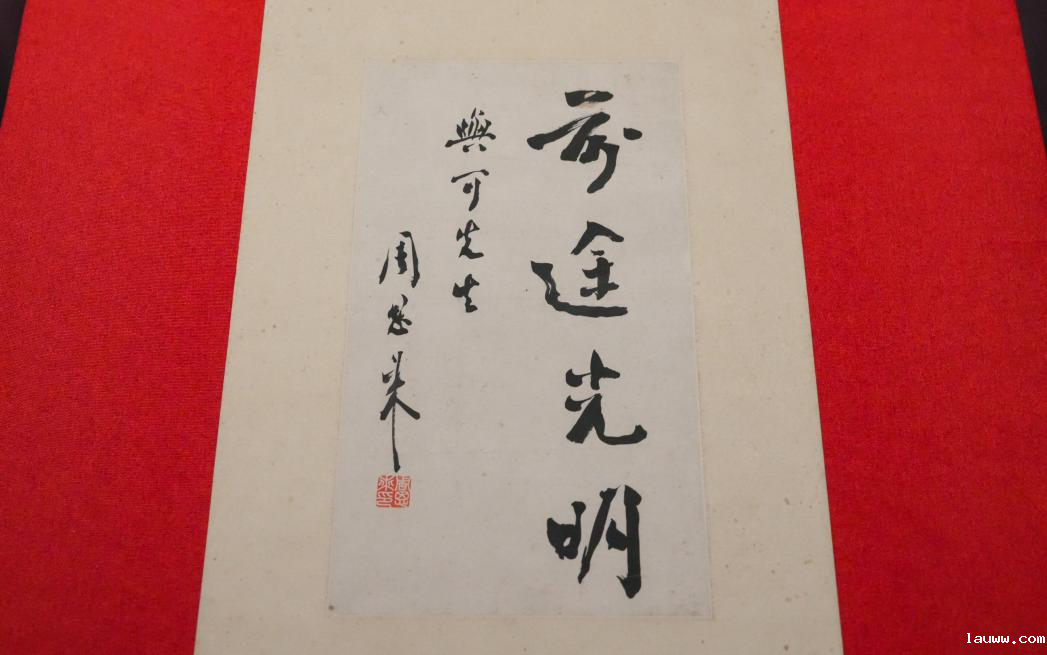 前途光明
與可先生
周恩来
lauww.com